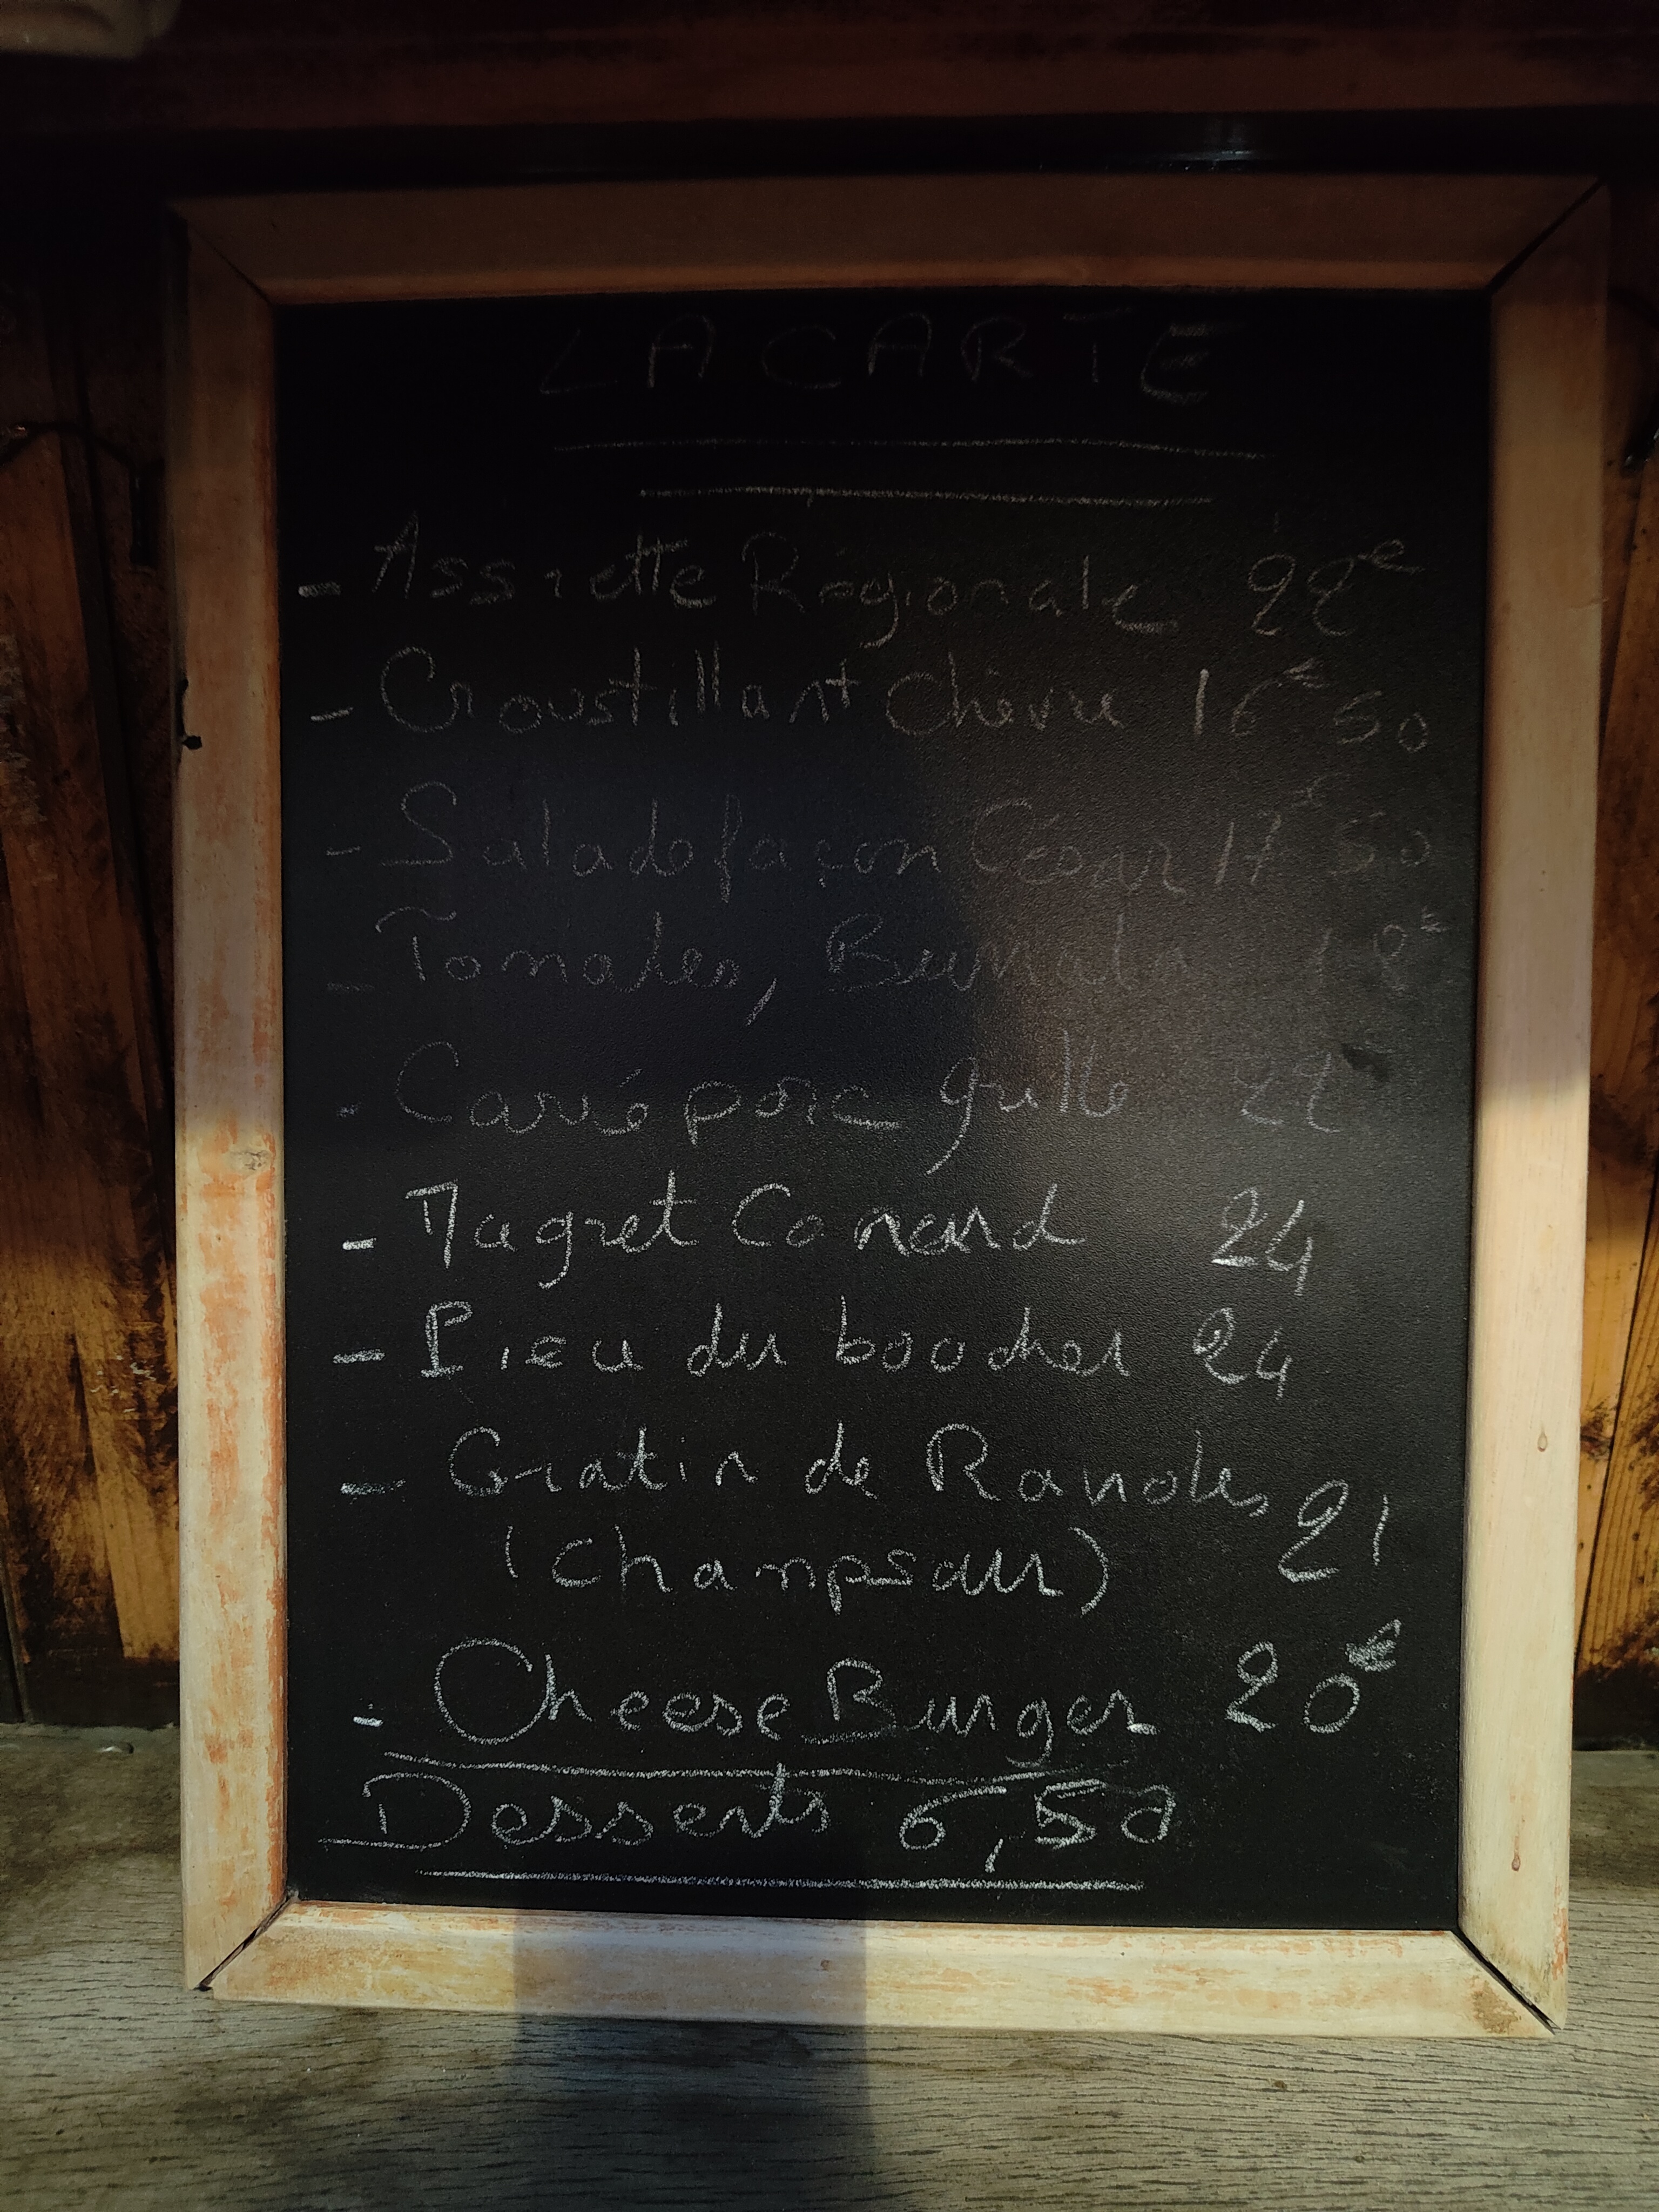 LA CARTE
- Assiette Régionale 22€
- Croustillant Chèvre 16€50
- Salade façon César 17€50
- Tomates, Burrata 18€
- Carré porc grillé 22
- Magret Canard 24
- Pièce du boucher 24
- Gratin de Ravioles 21
(Champsaur)
- Cheese Burger 20€
Desserts 6,50